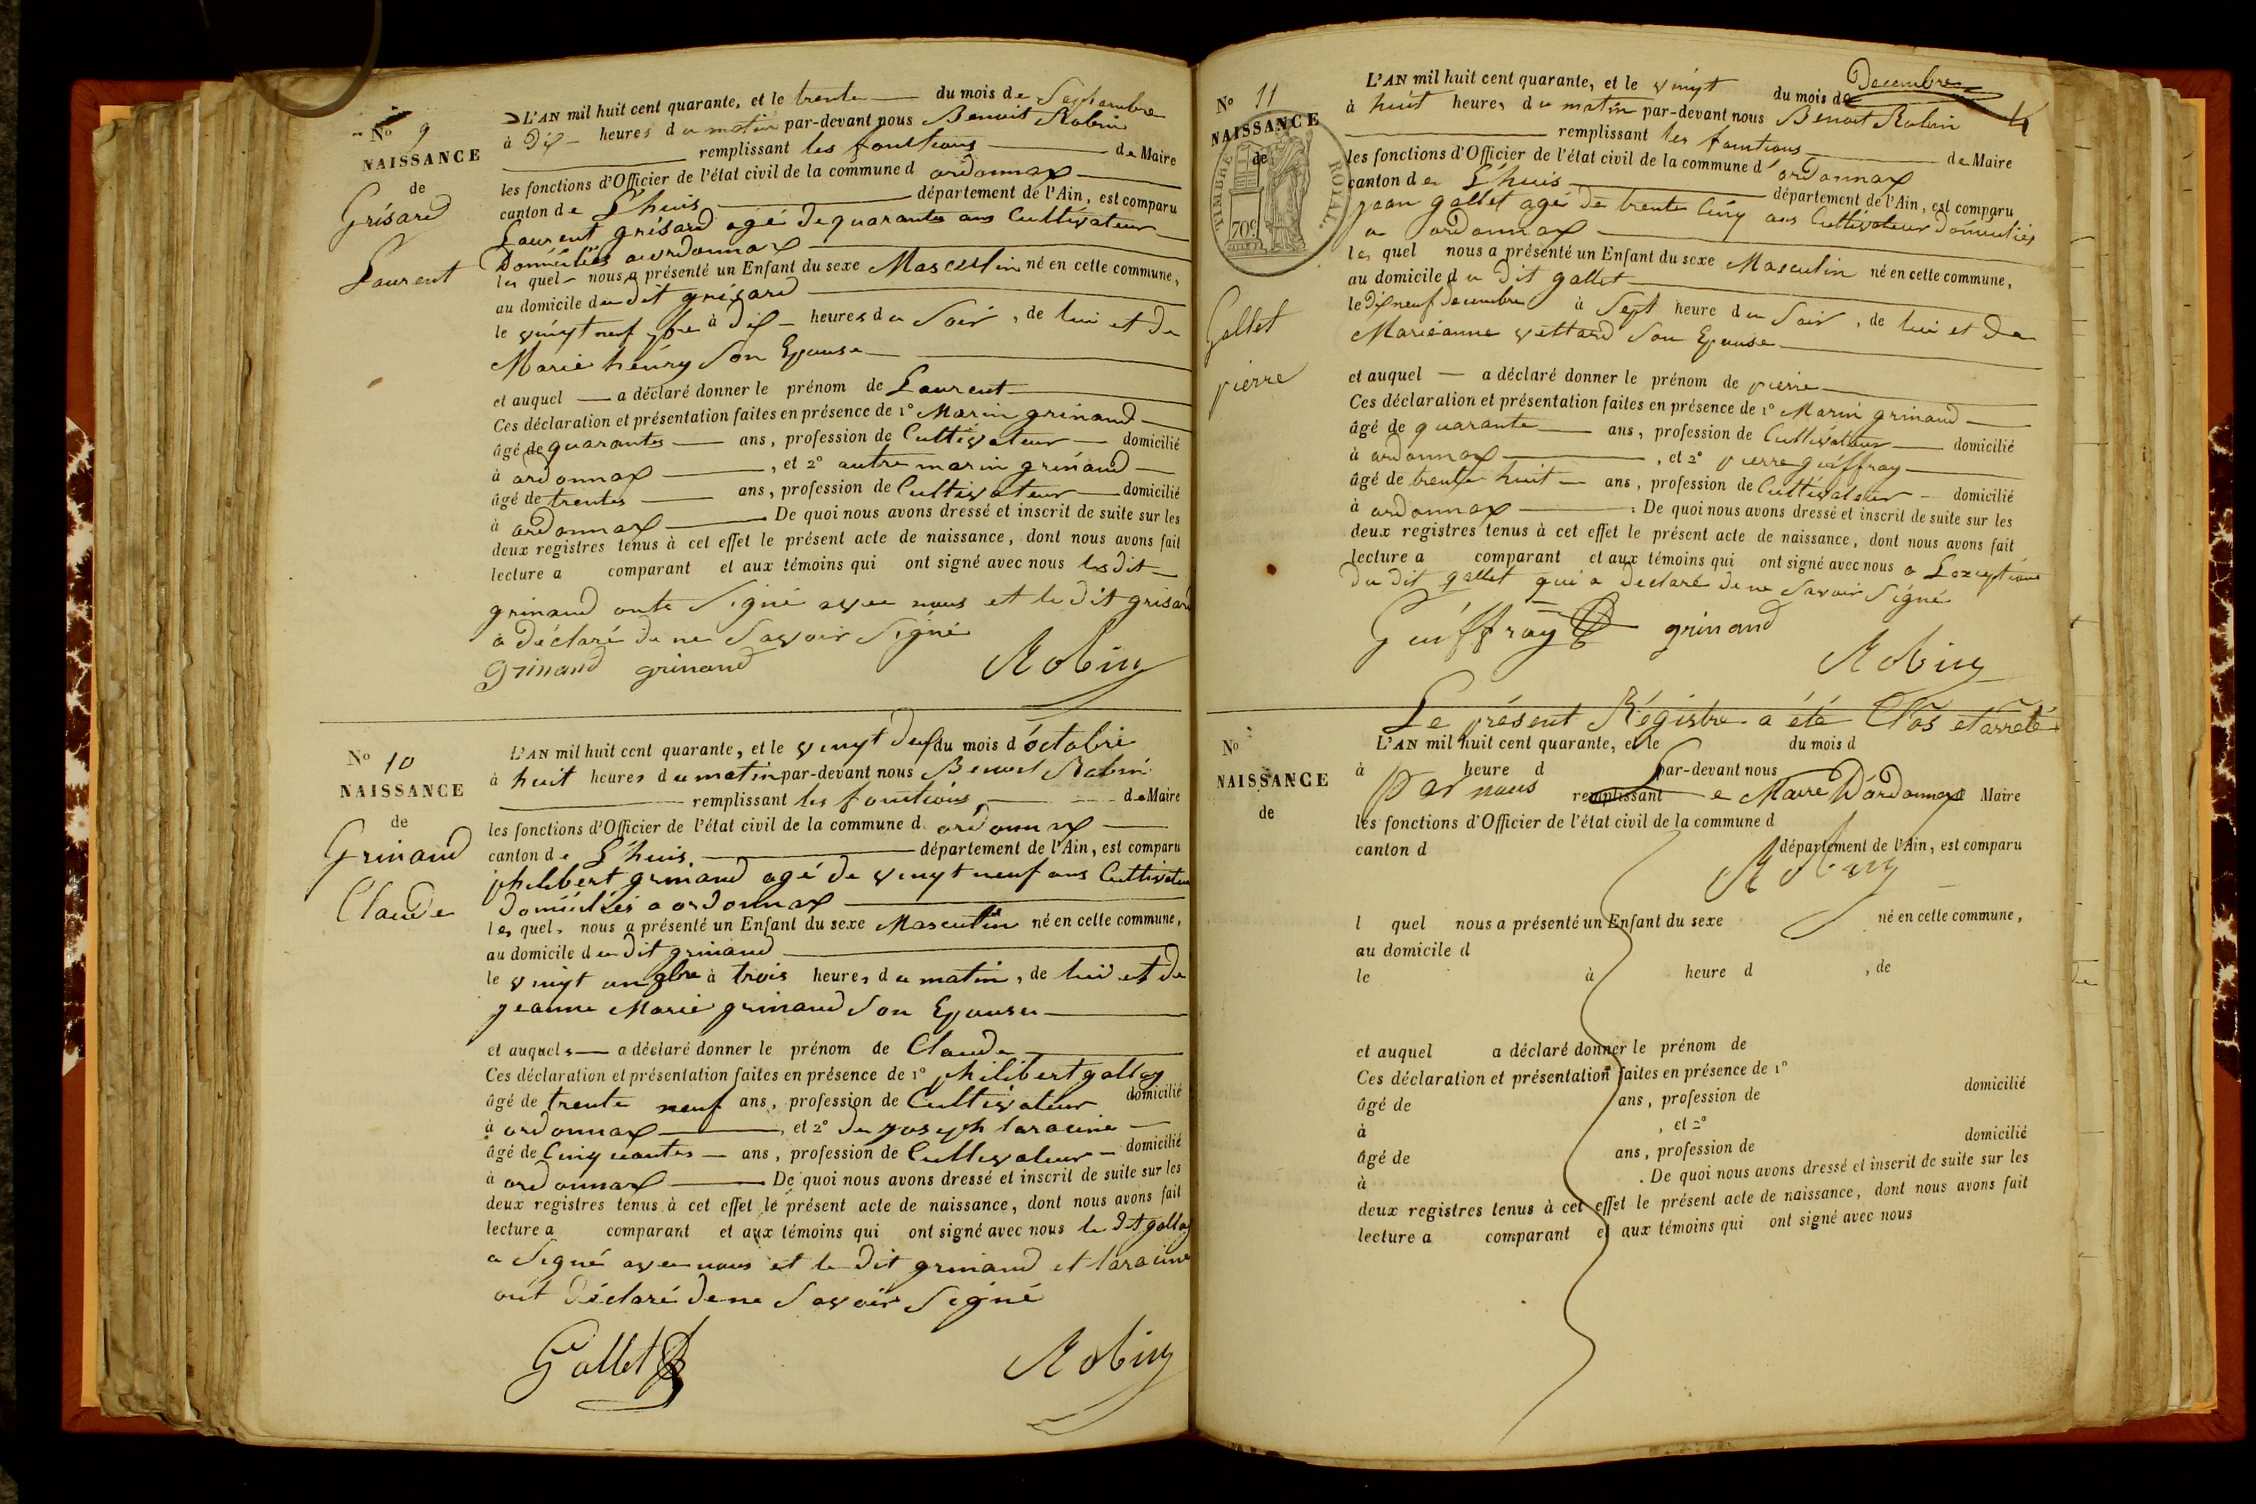 N° 9
NAISSANCE
de
Grisard
Laurent
L'AN mil huit cent quarante, et le trente du mois de Septembre
à Dix heures du matin par-devant nous Benoit Robin
remplissant les fonctions de Maire
les fonctions d'Officier de l'état civil de la commune d ordonnax
canton de L'huis département de l'Ain, est comparu
Laurent grisard agé de quarantes ans Cultivateur
Domiciliés a ordonnax
les quel nous a présenté un Enfant du sexe Masculin né en cette commune,
au domicile du dit grisard
le vingt neuf 7bre à dix heures du Soir, de lui et de
Marie henry Son Epouse
et auquel a déclaré donner le prénom de Laurent
Ces déclaration et présentation faites en présence de 1° Marin grinand
âgé de quarantes ans, profession de Cultivateur domicilié
à ordonnax, et 2° autre marin grinand
âgé de trentes ans, profession de Cultivateur domicilié
à ordonnax. De quoi nous avons dressé et inscrit de suite sur les
deux registres tenus à cet effet le présent acte de naissance, dont nous avons fait
lecture a comparant et aux témoins qui ont signé avec nous les dit
grinand onts Signé avec nous et le dit grisard
a déclaré de ne Savoir Signé
grinand grinand Robin
N° 10
NAISSANCE
de
Grinand
Claude
L'AN mil huit cent quarante, et le vingt deux du mois d'octobre
à huit heures du matin par-devant nous Benoit Robin
remplissant les fonctions, de Maire
les fonctions d'Officier de l'état civil de la commune d ordonnax
canton de L'huis département de l'Ain, est comparu
philibert grinand agé de vingt neuf ans Cultivateur
domiciliés a ordonnax
les quel, nous a présenté un Enfant du sexe Masculin né en cette commune,
au domicile du dit grinand
le vingt un 8bre à trois heures du matin, de lui et de
jeanne Marie grinand Son Epouse
et auquels a déclaré donner le prénom de Claude
Ces déclaration et présentation faites en présence de 1° philibert gallay
âgé de trente neuf ans, profession de Cultivateur domicilié
à ordonnax, et 2° de joseph laracine
âgé de Cinquantes ans, profession de Cultivateur domicilié
à ordonnax De quoi nous avons dressé et inscrit de suite sur les
deux registres tenus à cet effet le présent acte de naissance, dont nous avons fait
lecture a comparant et aux témoins qui ont signé avec nous le dit gallay
a Signé avec nous et le dit grinand et laracine
ont déclaré de ne Savoir Signé
Gallet Robin
N° 11
NAISSANCE
de
TIMBRE ROYAL
70c
Gallet
pierre
L'AN mil huit cent quarante, et le vingt du mois de Decembre
à huit heures du matin par-devant nous Benoit Robin
remplissant les fonctions de Maire
les fonctions d'Officier de l'état civil de la commune d'ordonnax
canton de L'huis département de l'Ain, est comparu
jean gallet agé de trente Cinq ans Cultivateur domiciliés
a ordonnax
les quel nous a présenté un Enfant du sexe Masculin né en cette commune,
au domicile du dit gallet
le dix neuf Decembre à Sept heure du Soir, de lui et de
Marieanne vettard Son Epouse
et auquel a déclaré donner le prénom de pierre
Ces déclaration et présentation faites en présence de 1° Marin grinand
âgé de quarante ans, profession de Cultivateur domicilié
à ordonnax, et 2° pierre guiffray
âgé de trente huit ans, profession de Cultivateur domicilié
à ordonnax. De quoi nous avons dressé et inscrit de suite sur les
deux registres tenus à cet effet le présent acte de naissance, dont nous avons fait
lecture a comparant et aux témoins qui ont signé avec nous a L'exceptions
du dit gallet qui a declaré de ne Savoir Signé
Guiffray grinand
Robin
Le présent Régistre a été Clos et arreté
N°
NAISSANCE
de
L'AN mil huit cent quarante, et le du mois d
à heure d par-devant nous
Par nous remplissant Le Maire D'ordonnax de Maire
les fonctions d'Officier de l'état civil de la commune d
canton d département de l'Ain, est comparu
Robin
l quel nous a présenté un Enfant du sexe né en cette commune,
au domicile d
le à heure d , de
et auquel a déclaré donner le prénom de
Ces déclaration et présentation faites en présence de 1°
âgé de ans, profession de domicilié
à , et 2°
âgé de ans, profession de domicilié
à . De quoi nous avons dressé et inscrit de suite sur les
deux registres tenus à cet effet le présent acte de naissance, dont nous avons fait
lecture a comparant et aux témoins qui ont signé avec nous